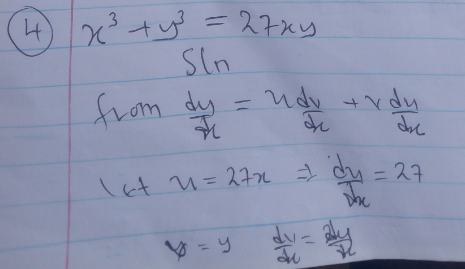 4 x³ + y³ = 27xy
Sln
from dy/dx = u dv/dx + v du/dx
let u = 27x ⇒ du/dx = 27
v = y dv/dx = dy/dx